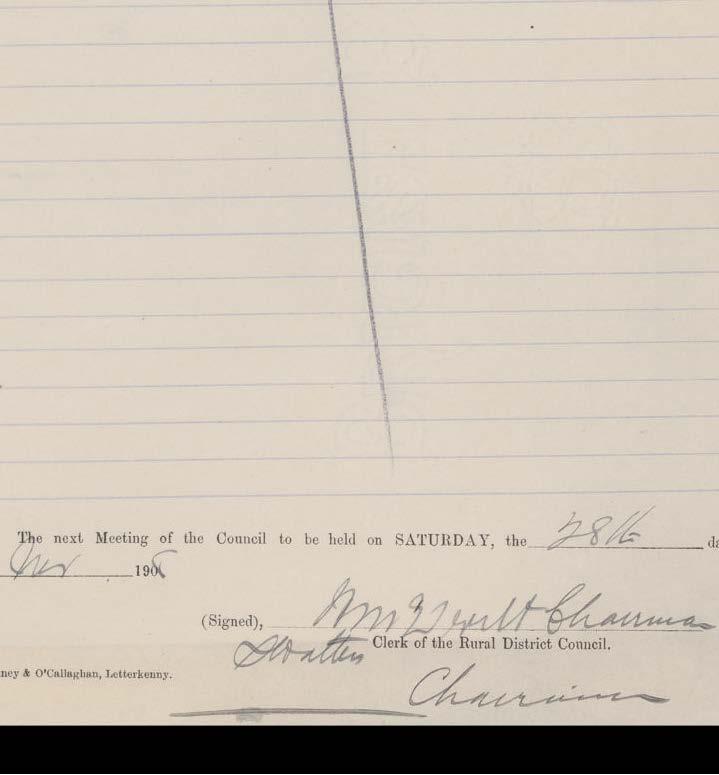 The next Meeting of the Council to be held on SATURDAY, the 28th da
Nov 190
(Signed), Wm Chairman
Clerk of the Rural District Council.
Chairman
ney & O'Callaghan, Letterkenny.